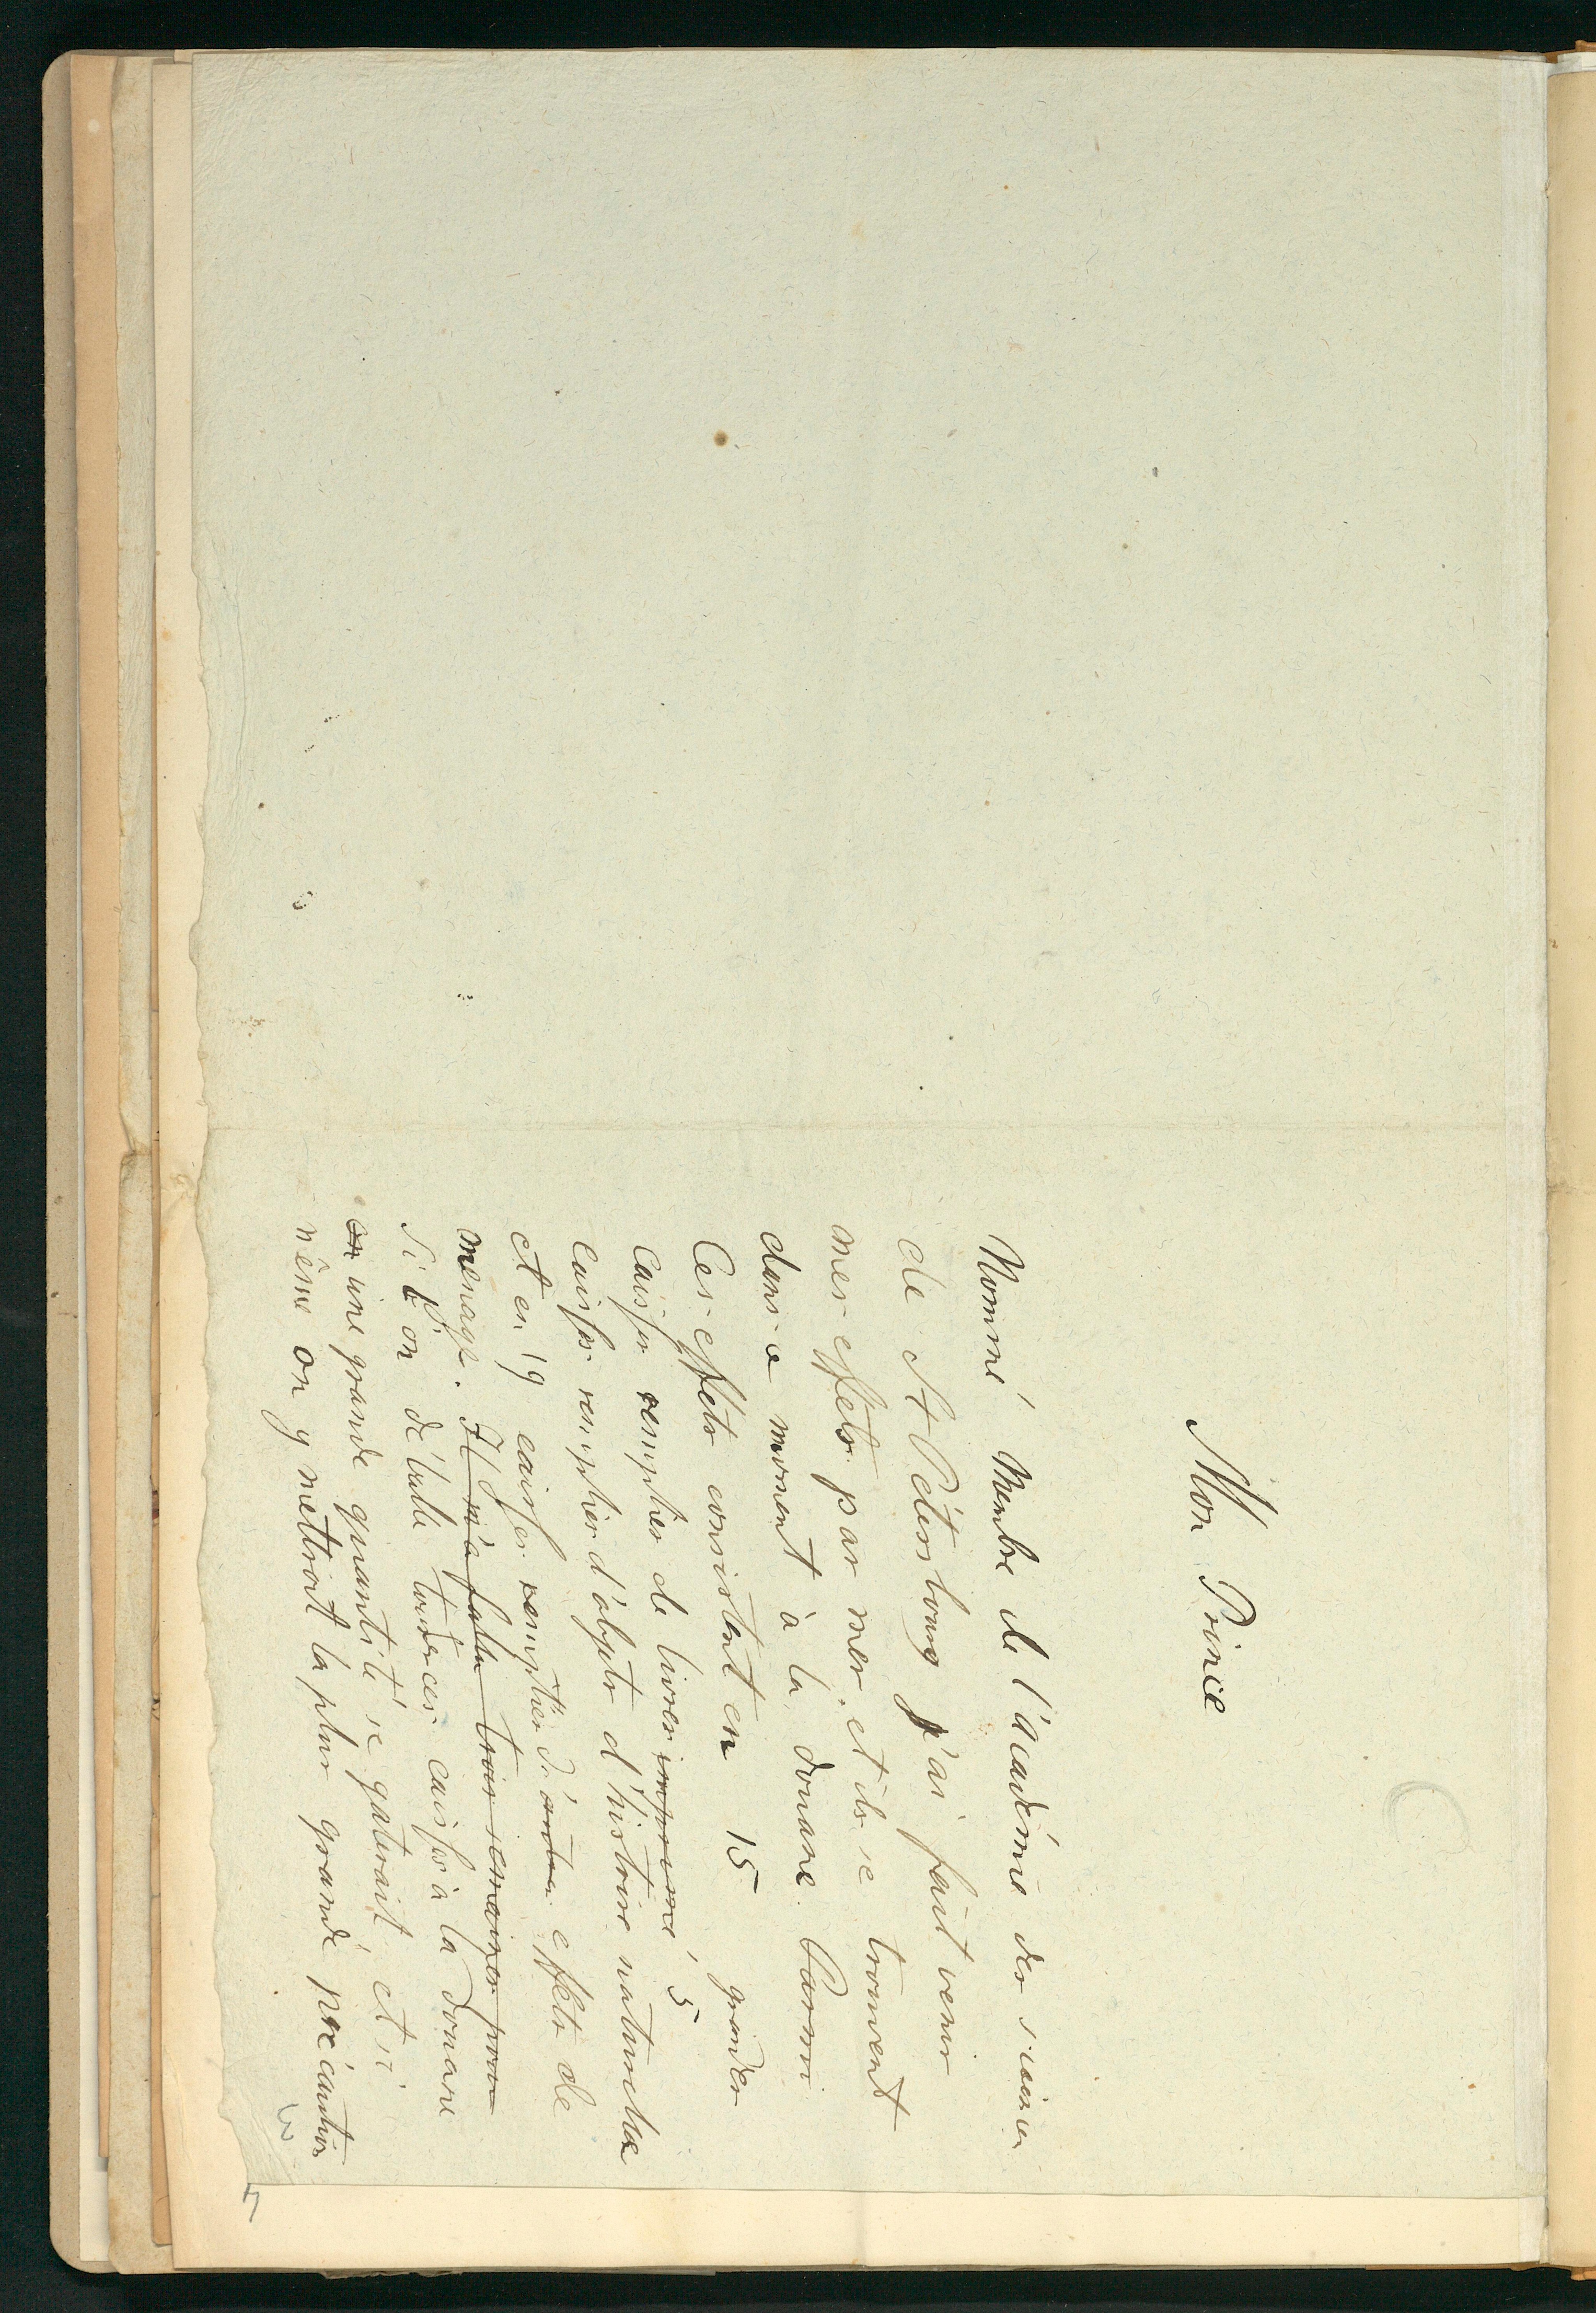 Mon Prince
Nommé Membre de l'académie des sciences
de St Pétersbourg j'ai fait venir
mes effets par mer, et ils se trouvent
dans ce moment à la douane. Parmi
Ces effets consistent en 15 grandes
Caisses remplies de livres imprimé 5
caisses remplies d'objets d'histoire naturelle
et en 19 caisses remplies d'autres effets de
menage. Il m'a fallu trois semaines pour
Si l'on déballe toutes ces caisses à la douane
en une grande quantité se gaterait et si
même on y mettrait la plus grande précaution
7